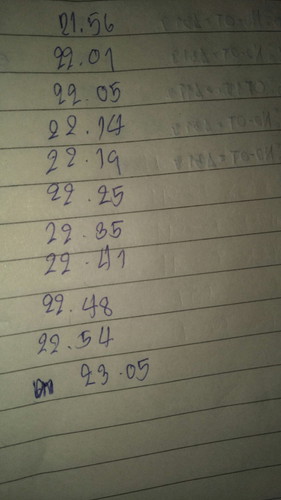 21.56
22.01
22.05
22.14
22.19
22.25
22.35
22.41
22.48
22.54
23.05